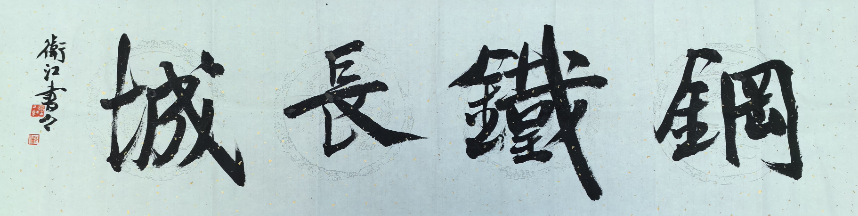 鋼鐵長城
衛江書